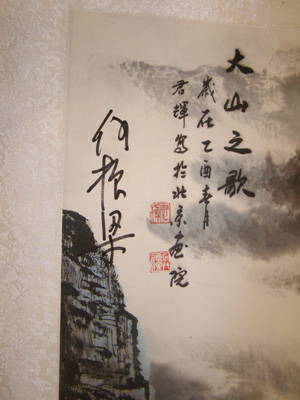 大山之歌
岁在乙酉春月
君辉写于北京画院
何振梁